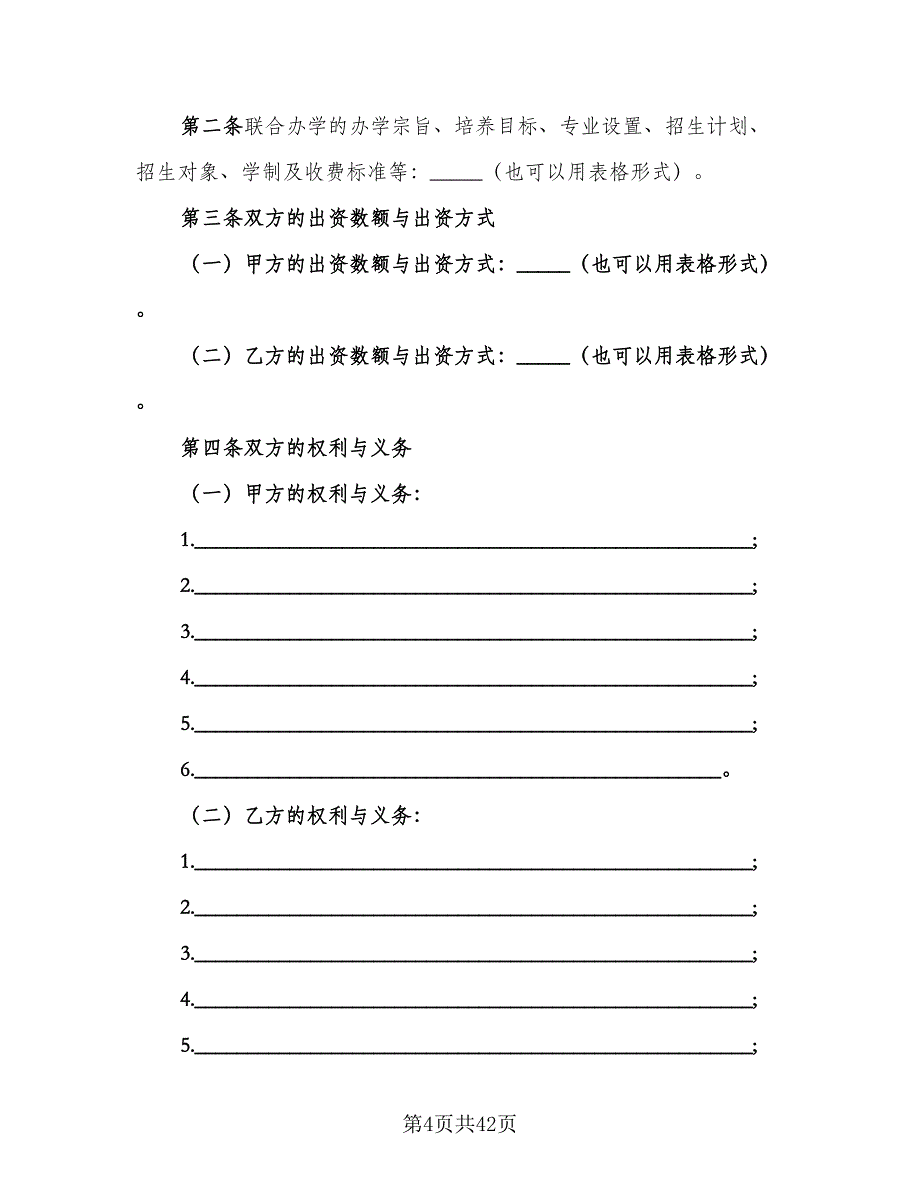 第二条联合办学的办学宗旨、培养目标、专业设置、招生计划、
招生对象、学制及收费标准等：_____（也可以用表格形式）。
第三条双方的出资数额与出资方式
（一）甲方的出资数额与出资方式：_____（也可以用表格形式）
。
（二）乙方的出资数额与出资方式：_____（也可以用表格形式）
。
第四条双方的权利与义务
（一）甲方的权利与义务：
1._____________________________________________________;
2._____________________________________________________;
3._____________________________________________________;
4._____________________________________________________;
5._____________________________________________________;
6.__________________________________________________。
（二）乙方的权利与义务：
1._____________________________________________________;
2._____________________________________________________;
3._____________________________________________________;
4._____________________________________________________;
5._____________________________________________________;
第4页共42页